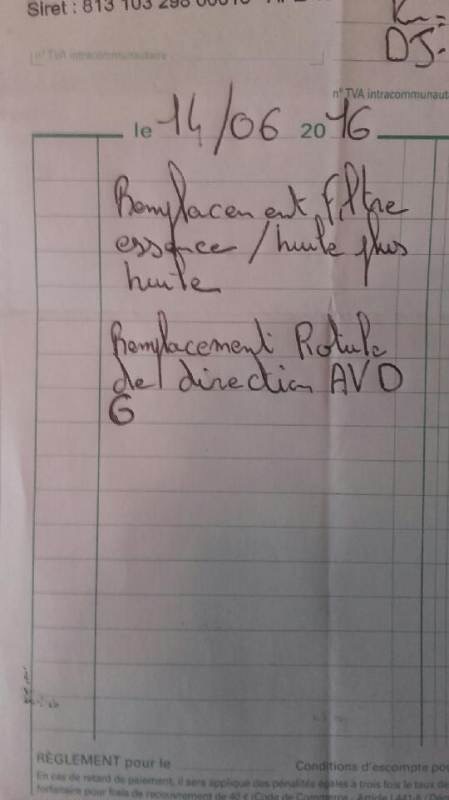 Siret : 813 103 298 00010
DJ:
n° TVA intracommunautaire
n° TVA intracommunaut
le 14/06 2016
Remplacement filtre
essence / huile plus
huile
Remplacement Rotule
de direction AVD
G
RÈGLEMENT pour le
Conditions d'escompte pou
En cas de retard de paiement, il sera appliqué des pénalités égales à trois fois le taux de
forfaitaire pour frais de recouvrement de 40 € (Code de Commerce - Article L 441-6